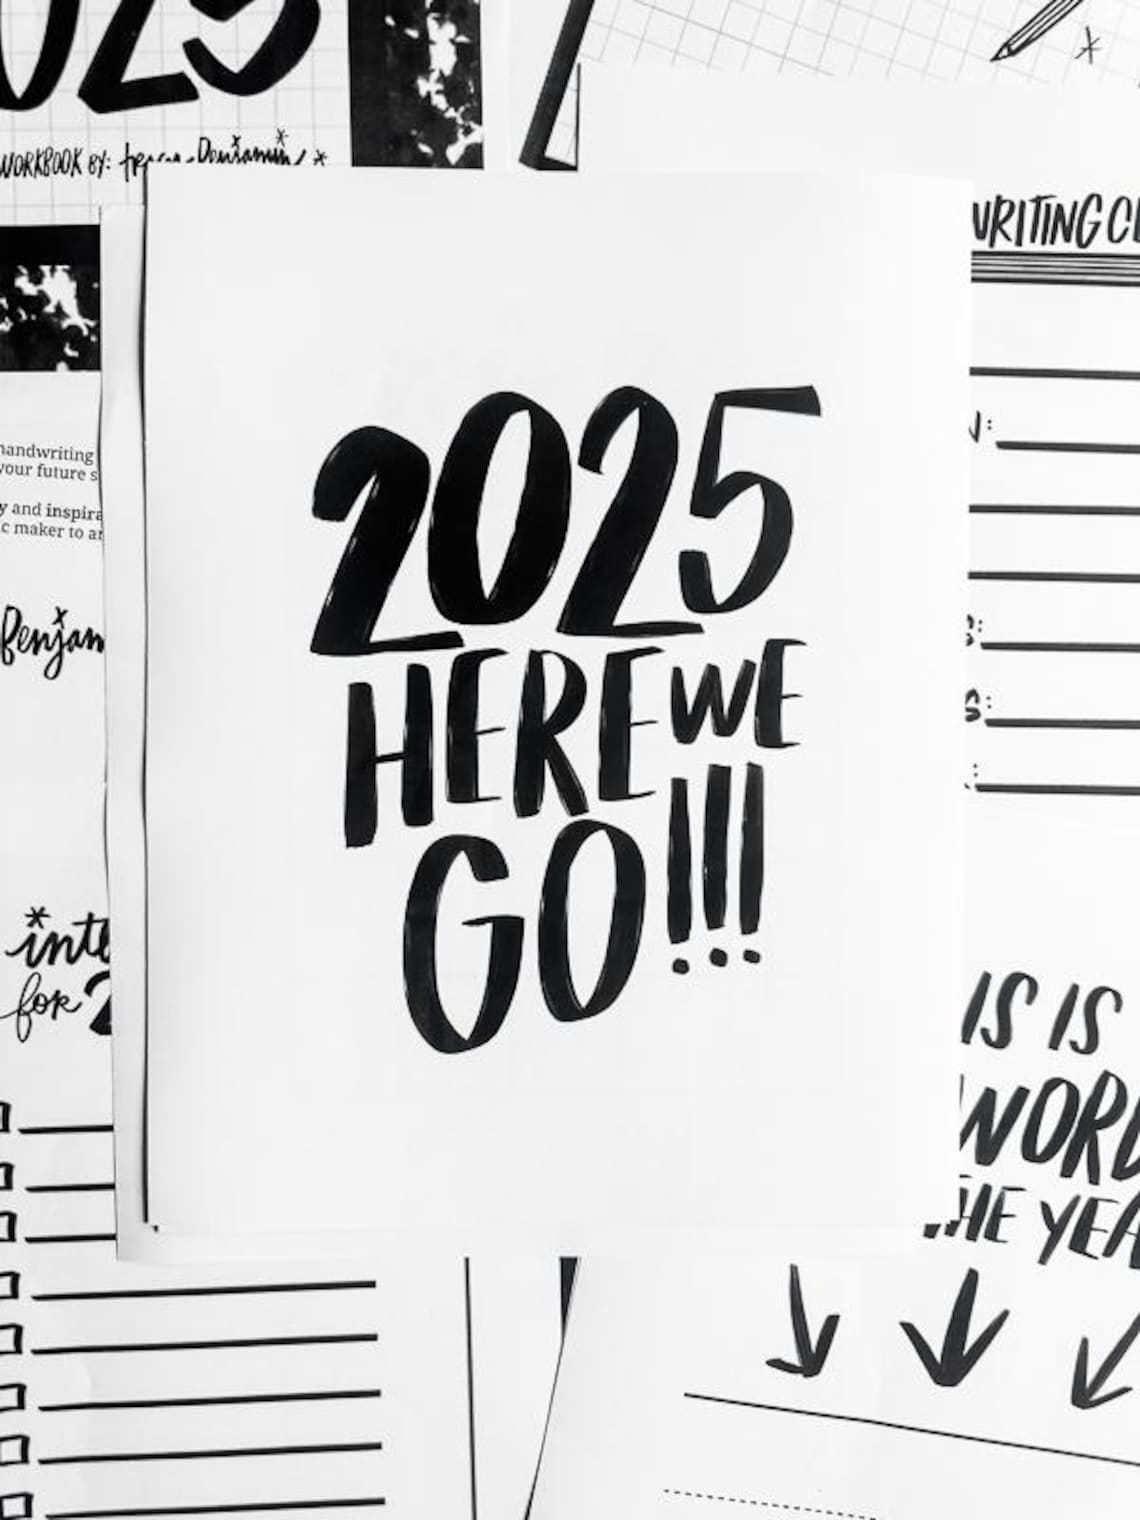 2025
WORKBOOK BY: Benjamin
handwriting
your future s
y and inspira
c maker to ar
Benjam
inte
for 2
2025
HERE WE
GO!!!
WRITING
N:
S:
S:
:
IS IS
WORD
THE YEA